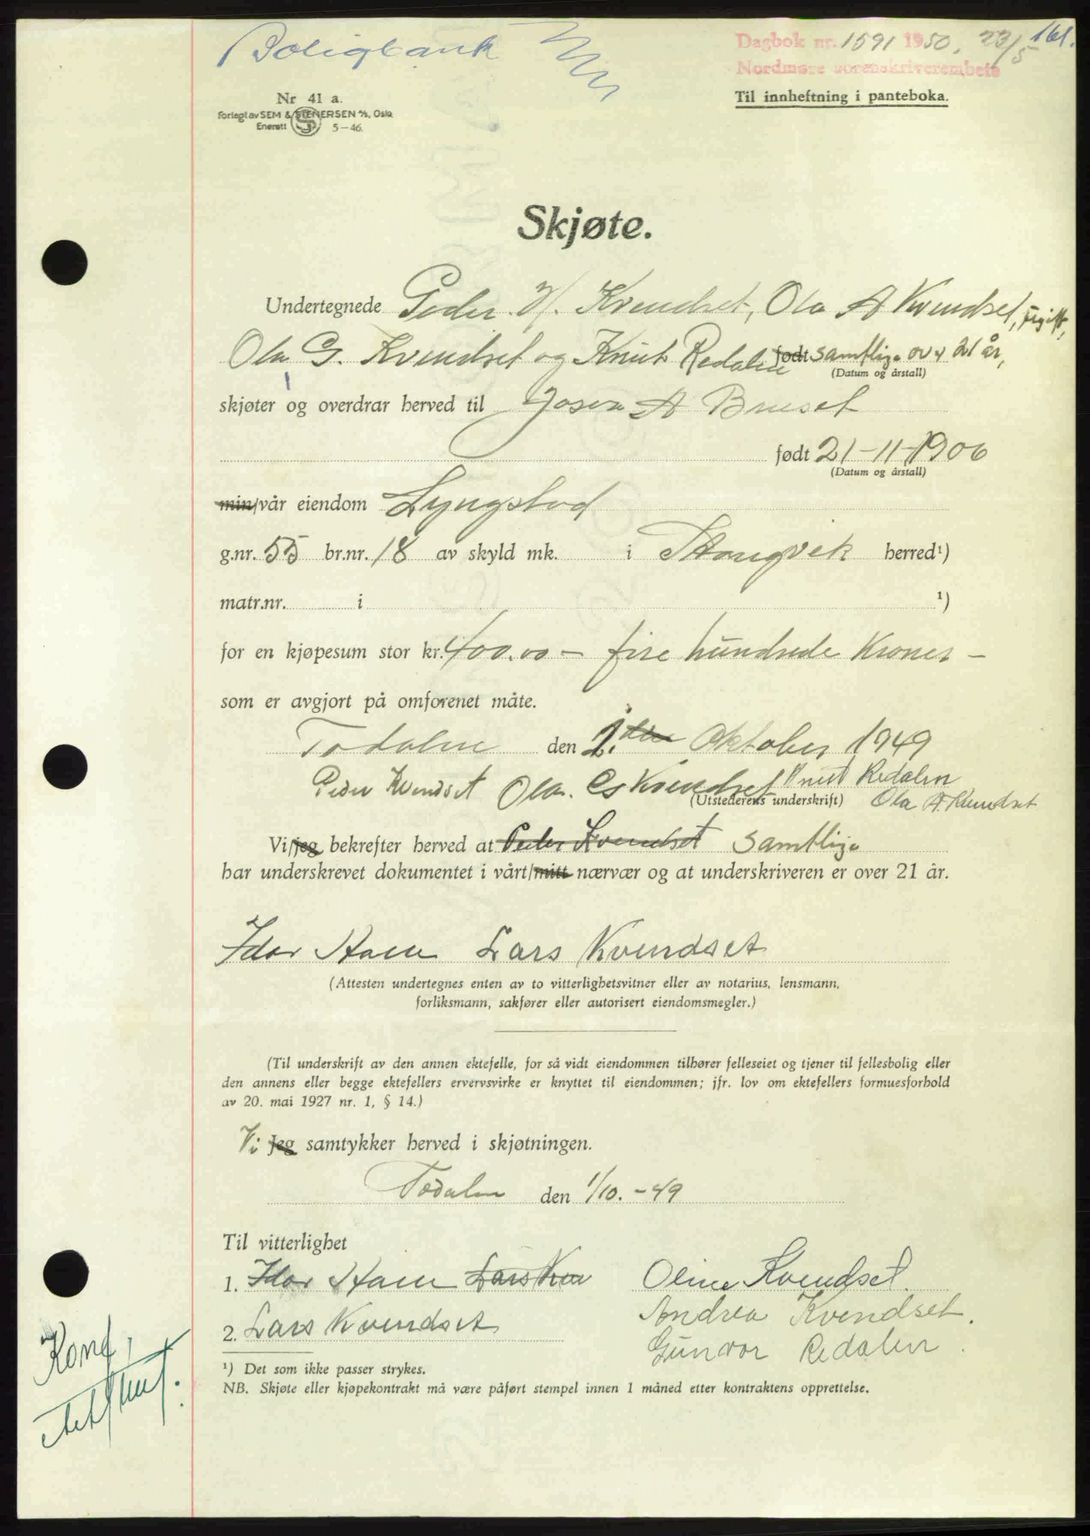 Boligbank
Dagbok nr. 1591 1950, 23/5 161.
Nordmøre sorenskriverembete
Til innheftning i panteboka.
Nr 41 a.
Forlagt av SEM & STENERSEN A/S, Oslo
Enerett S 5-46.
Skjøte.
Undertegnede Peder Kvendset, Ola A Kvendset, ugift,
Ola G. Kvendset og Knut Redalen født samtlige over 21 år,
(Datum og årstall)
skjøter og overdrar herved til A Bruset
født 21-11-1906
(Datum og årstall)
min/vår eiendom Lyngstad
g.nr. 55 br.nr. 18 av skyld mk. i Stangvik herred¹)
matr.nr. i ¹)
for en kjøpesum stor kr. 400.00 - fire hundrede Kroner -
som er avgjort på omforenet måte.
Todalen den 1. oktober 1949
Peder Kvendset Ola G Kvendset Knut Redalen
(Utstederens underskrift) Ola A Kvendset
Vi/jeg bekrefter herved at Peder Kvendset samtlige
har underskrevet dokumentet i vårt/mitt nærvær og at underskriveren er over 21 år.
Lars Kvendset
(Attesten undertegnes enten av to vitterlighetsvitner eller av notarius, lensmann,
forliksmann, sakfører eller autorisert eiendomsmegler.)
(Til underskrift av den annen ektefelle, for så vidt eiendommen tilhører felleseiet og tjener til fellesbolig eller
den annens eller begge ektefellers ervervsvirke er knyttet til eiendommen; jfr. lov om ektefellers formuesforhold
av 20. mai 1927 nr. 1, § 14.)
Vi Jeg samtykker herved i skjøtningen.
Todalen den 1/10.-49
Til vitterlighet
1. Lars Kve Oline Kvendset.
Andrea Kvendset.
2. Lars Kvendset
Gunvor Redalen.
¹) Det som ikke passer strykes.
NB. Skjøte eller kjøpekontrakt må være påført stempel innen 1 måned etter kontraktens opprettelse.
Konf,